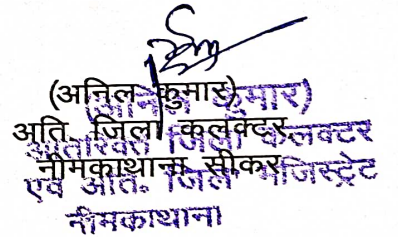 (अनिल कुमार)
अति. जिला कलक्टर,
नीमकाथाना सीकर
(अनिल कुमार)
अतिरिक्त जिला कलक्टर
एवं अति. जिला मजिस्ट्रेट
नीमकाथाना